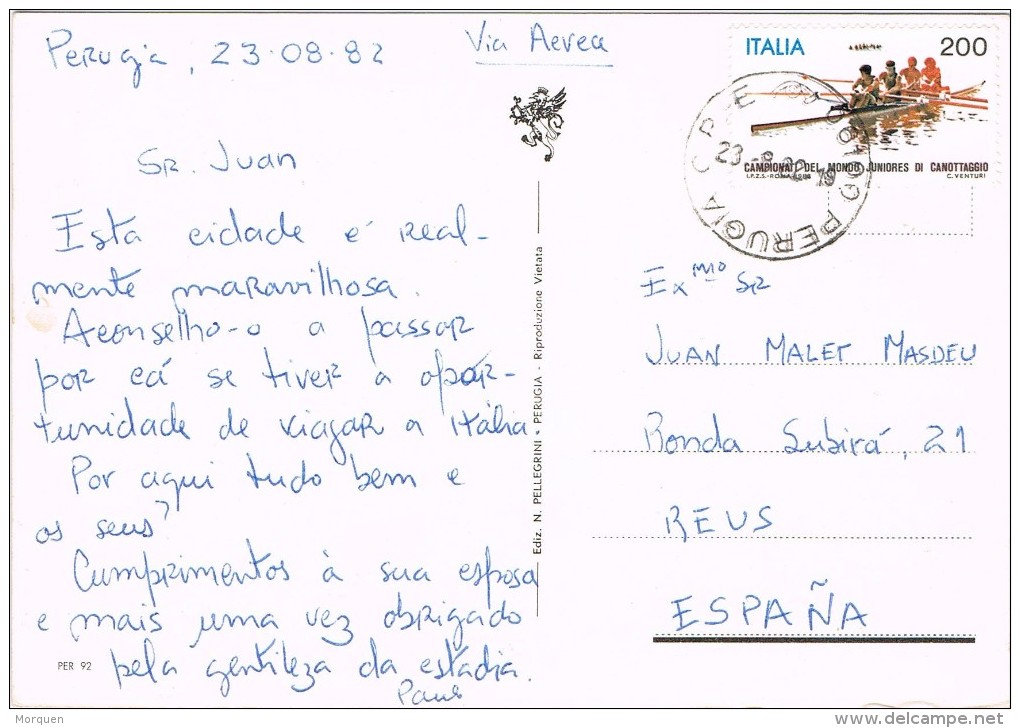 Perugia, 23-08-82
Via Aerea
ITALIA 200
CAMPIONATI DEL MONDO JUNIORES DI CANOTTAGGIO
I.P.Z.S.-ROMA-1982 C. VENTURI
PERUGIA C P
23 -8-82
Sr. Juan
Esta cidade é real-
mente maravilhosa.
Aconselho-o a passar
por cá se tiver a opor-
tunidade de viajar a Itália.
Por aqui tudo bem e
os seus?
Cumprimentos à sua esposa
e mais uma vez obrigado
pela gentileza da estadia.
PER 92
Ediz. N. PELLEGRINI - PERUGIA - Riproduzione Vietata
Exmo Sr
JUAN MALET MASDEU
Ronda Subirá, 21
REUS
ESPAÑA
Morquen
delcampe.net